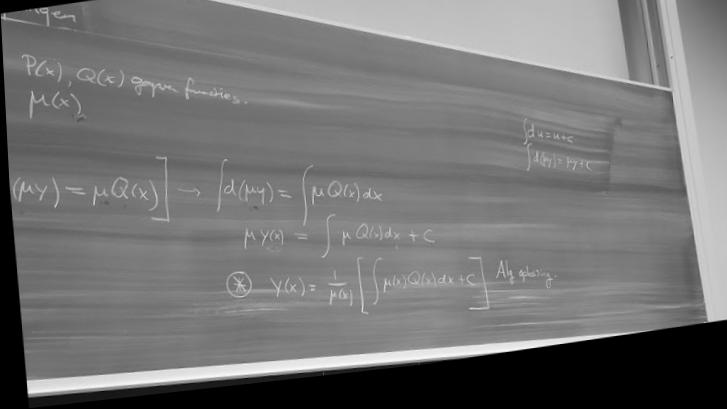 P(x), Q(x) gegeven functies.
μ(x)
∫du = u+c
∫d(μy) = μy+c
(μy) = μQ(x)] → ∫d(μy) = ∫μQ(x)dx
μy(x) = ∫μQ(x)dx + C
⊛ y(x) = 1/μ(x) [∫μ(x)Q(x)dx + C] Alg oplossing.